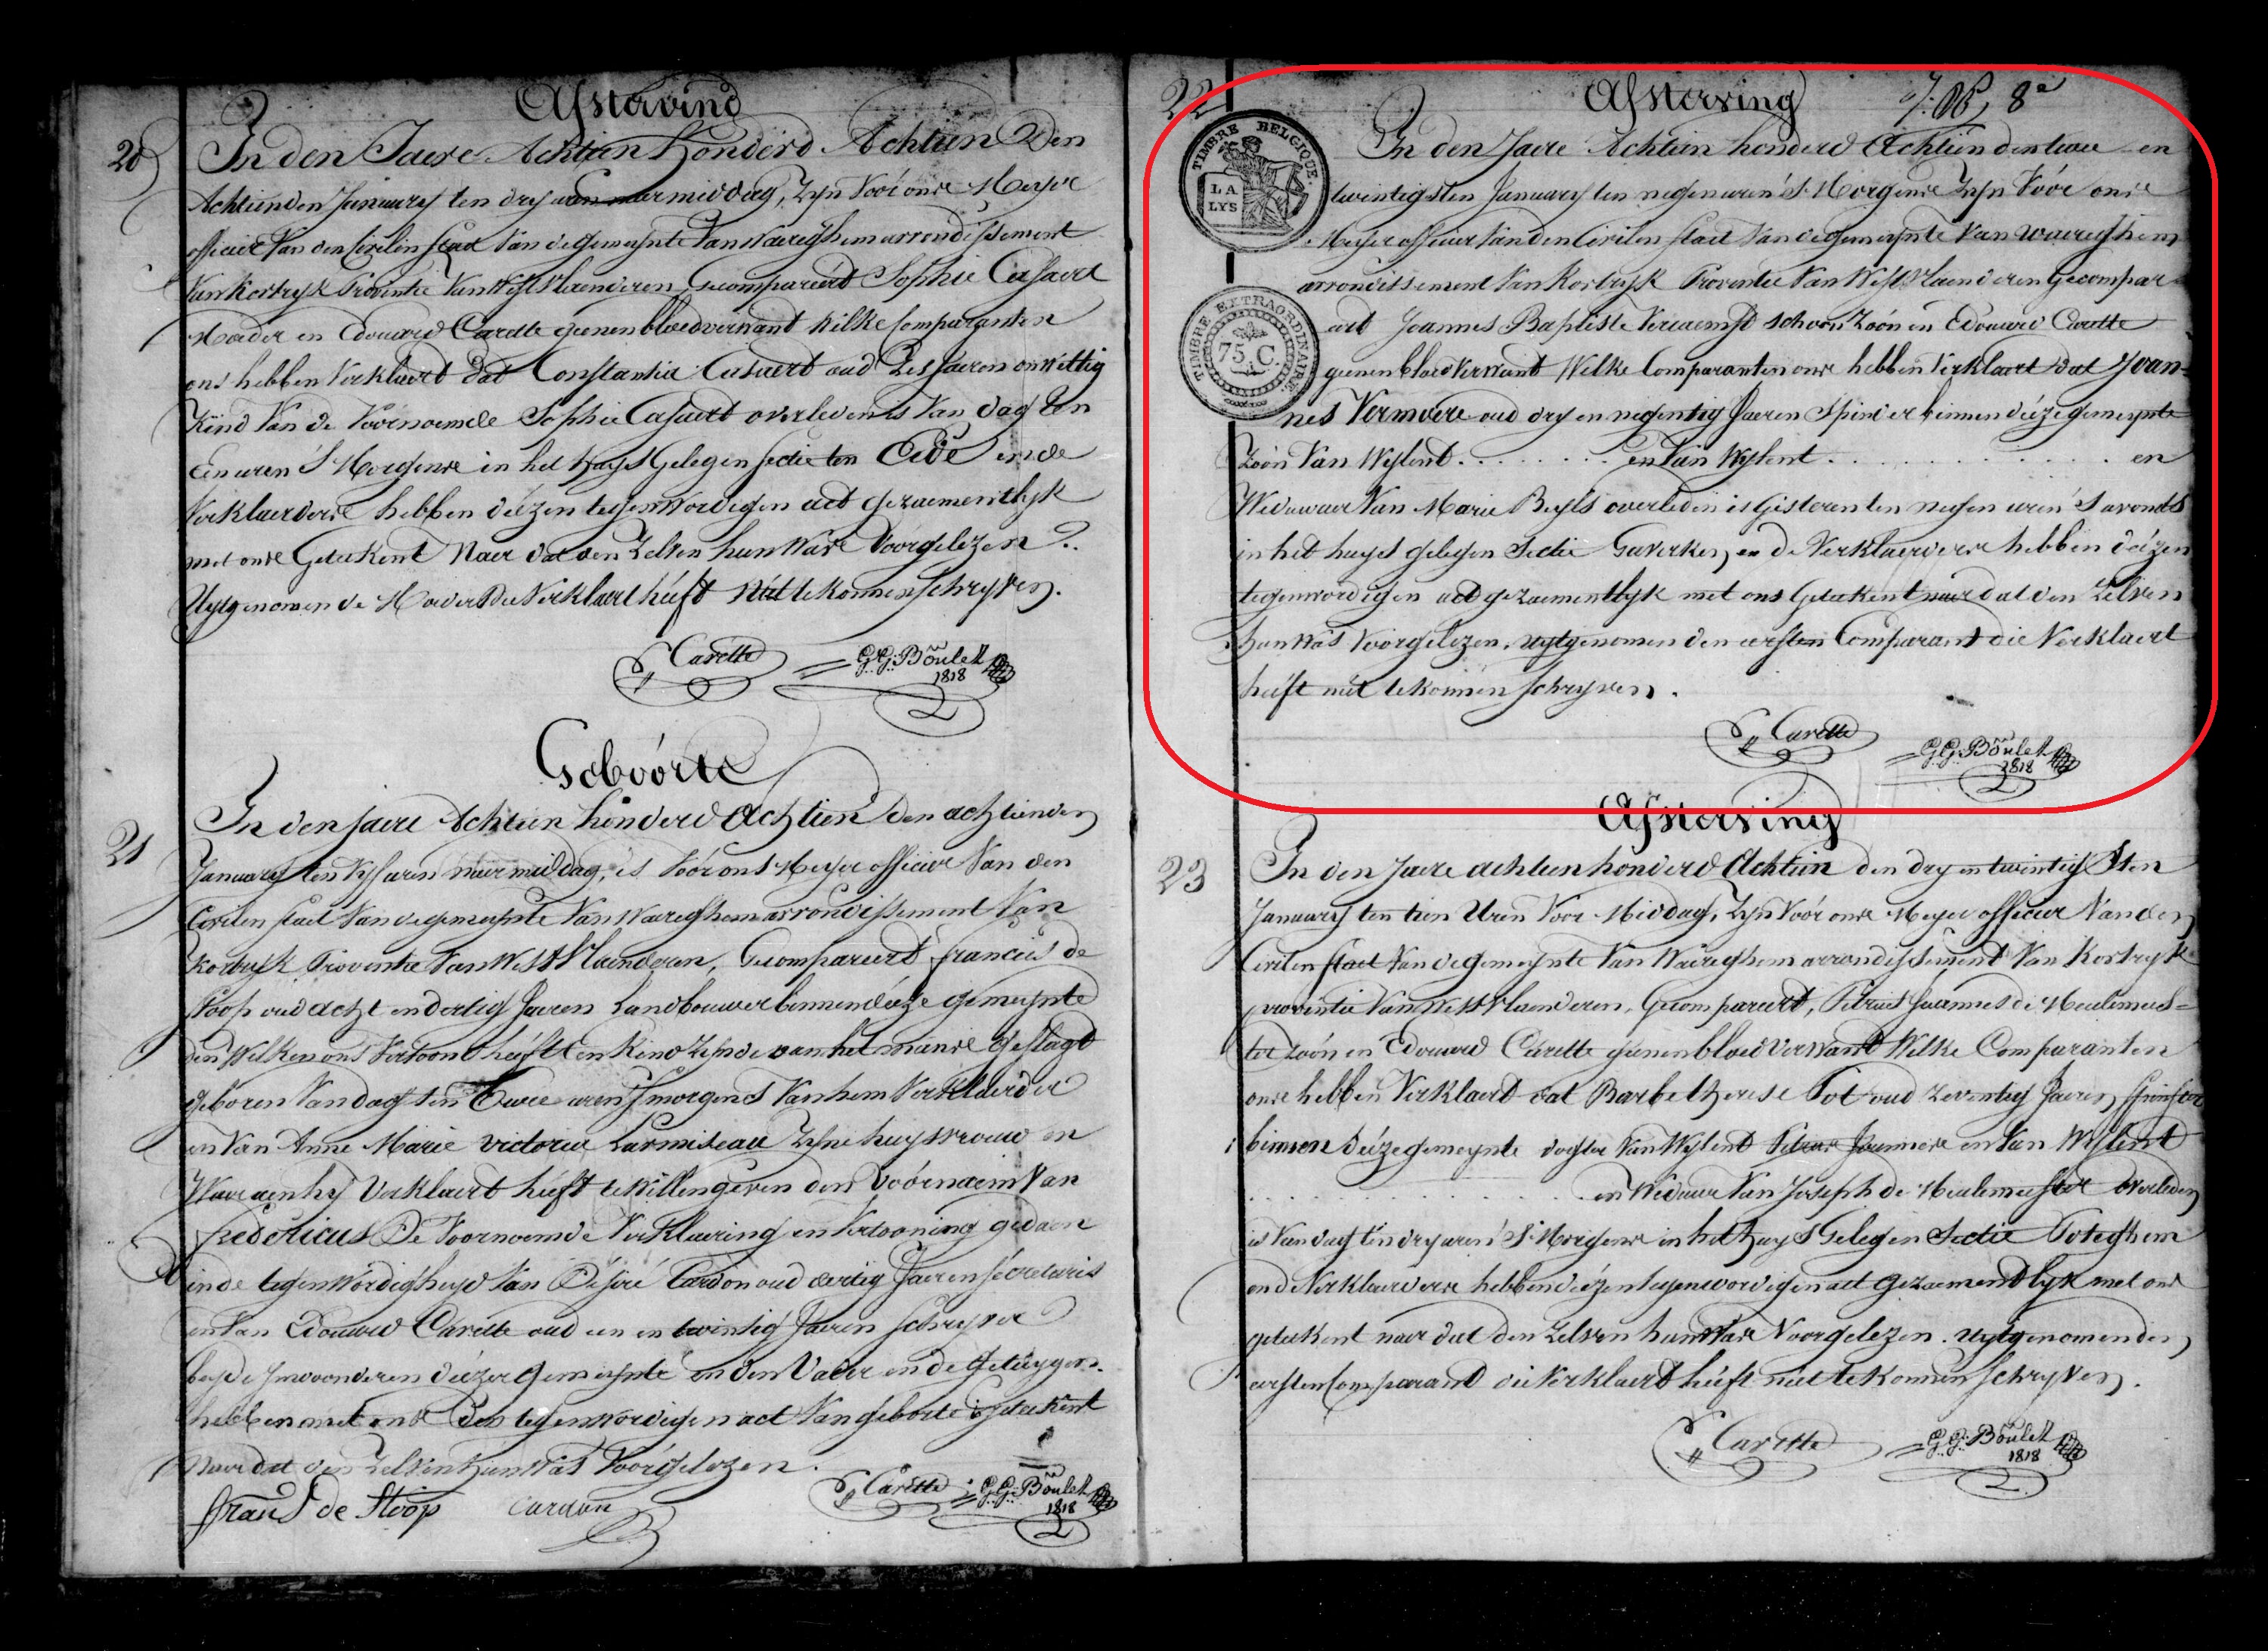 Afsterving
20
In den Jaere Achtien honderd Achtien Den
Achtienden January ten dry uren naermiddag, zyn voór onse Meyer
officier van den Civilen staet van de gemeynte van Waereghem arrondissement
van Kortryk Provintie van WestVlaenderen, Gecompareert Sophie Casaert
Moeder en Edouard Carette geenen bloedverwant Welke Comparanten
ons hebben verklaert dat Constantia Casaert oud zes Jaeren onwettig
Kind van de voórnoemde Sophie Casaert overleden is van dag ten
Een uren 'S Morgens in het huys Gelegen sectie ten
Verklaerders hebben deézen tegenwordigen act gezaementlyk
met ons Geteekent Naer dat den zelven hun was voorgelezen
Uytgenomen de Moeder die verklaert heéft niet te konnen schryven.
Carette G.G. Boulet
1818
Geboórte
21
In den jaere Achtien honderd Achtien den achtienden
January ten vyf uren naermiddag, is voór ons Meyer officier van den
Civilen staet van de gemeynte van Waereghem arrondissement van
Kortryk Provintie van WestVlaenderen, Gecompareert francies de
Stoop oud acht en dertig Jaeren Landbouwer binnen deéze gemeynte
den Welken ons vertoont heéft een Kind zynde van het manne geslagt
geboren van dag ten twee uren smorgens van hem verklaerder
en van Anne Marie victorie Larmiseau zyne huysvrouw en
Waer aen hy verklaert heéft te willen geven den voórnaem van
fredericus De voornoemde verklaering en vertooning gedaen
in de tegenwordigheyd van Désiré Cardon oud dertig Jaeren sécretaris
en van Edouard Carette oud een en twintig Jaeren schryver
beyde inwoonderen deézer gemeynte en den Vader en de getuygen
hebben met ons den tegenwordigen act van géborte geteekent
Naer dat den zelven hun was voórgelezen.
frans de Stoop Cardon Carette G.G. Boulet
1818
22
Afsterving
8e
TIMBRE BELGIQUE.
LA
LYS
TIMBRE EXTRAORDINAIRE.
75. C.
In den Jaere Achtien honderd Achtien den twee en
twintigsten January ten negen uren 'S Morgens zyn voór ons
Meyer officier van den Civilen staet van de gemeynte van Waereghem
arrondissement van Kortryk Provintie van WestVlaenderen Gecompar
eert Joannes Baptiste Vercaempt schoon zoón en Edouard Carette
geenen bloedverwant Welke Comparanten ons hebben verklaert dat Joan=
nes Vermeere oud dry en negentig Jaeren Spinder binnen deéze gemeynte
zoón van Wylent . . . . . . . en van Wylent . . . . . . . . . . . . en
Weduwaer van Marie Beyls overleden is gisteren ten negen uren 'S avonds
in het huys gelegen sectie Gaverken, en de Verklaerders hebben deézen
tegenwordigen act gezaementlyk met ons Geteekent naer dat den zelven
hun was voórgelezen, uytgenomen den eersten Comparant die Verklaert
heéft niet te konnen schryven.
Carette G.G. Boulet
1818
Afsterving
23
In den Jaere achtien honderd Achtien den dry en twintigsten
January ten tien Uren Voor Middag, zyn voór ons Meyer officier van den
Civilen staet van de gemeynte van Waereghem arrondissement van Kortryk
provintie van WestVlaenderen, Gecompareert, Petrus Joannes de Meulemees=
ter zoón en Edouard Carette geenen bloedverwant Welke Comparanten
ons hebben Verklaert dat Barbe therese Tot oud zeventig Jaeren spinster
binnen deéze gemeynte dogter van Wylent Petrus Joannes en van Wylent
. . . . . . . . . . . . . . . en Weduwe van Joseph de Meulemeester overleden
is van dag ten dry uren 'S Morgens in het huys Gelegen Sectie Poteghem
en de Verklaerders hebben deézen tegenwordigen act gezaementlyk met ons
geteekent naer dat den zelven hun was voorgelezen. uytgenomen den
eersten Comparant die Verklaert heéft niet te konnen schryven.
Carette G.G. Boulet
1818